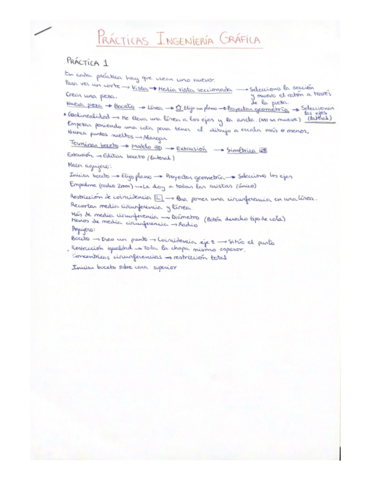 PRÁCTICAS INGENIERÍA GRÁFICA
PRÁCTICA 1
En cada práctica hay que crear uno nuevo.
Para ver un corte → Vista → Media vista seccionada → Selecciono la sección
y muevo el ratón a través
de la pieza.
Crear una pieza.
Nueva pieza → Boceto → Línea → Elijo un plano → Proyectar geometría → Selecciono
los ejes
* Ortogonalidad → He clicar una línea a los ejes y la ancla (no se mueve)
Empezar poniendo una cota para tener el dibujo a escala más o menos.
Nunca puntos sueltos →
Terminar boceto → Modelo 3D → Extrusión → Simétrica
Extrusión → Editar boceto
Hacer agujero:
Iniciar boceto → Elijo plano → Proyectar geometría → Selecciono los ejes
Empalme (radio 2mm) → Le doy a todas las aristas (único)
Restricción de coincidencia → Para poner una circunferencia en una línea.
Recortar media circunferencia y línea
Más de media circunferencia → Diámetro (Botón derecho tipo de cota)
Menos de media circunferencia → Radio
Agujero:
Boceto → Creo un punto → Coincidencia eje z → Sitúo el punto
* Restricción igualdad → Toda la chapa mismo espesor.
Concéntricas circunferencias → restricción total
Iniciar boceto sobre cara superior